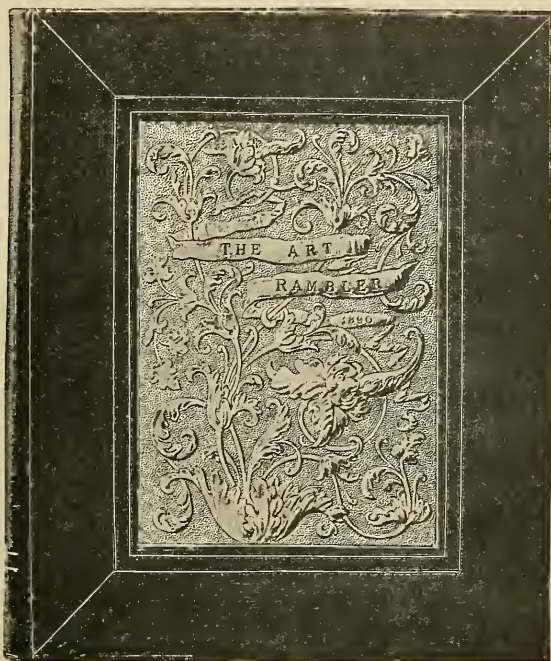 THE ART
RAMBLER
1890